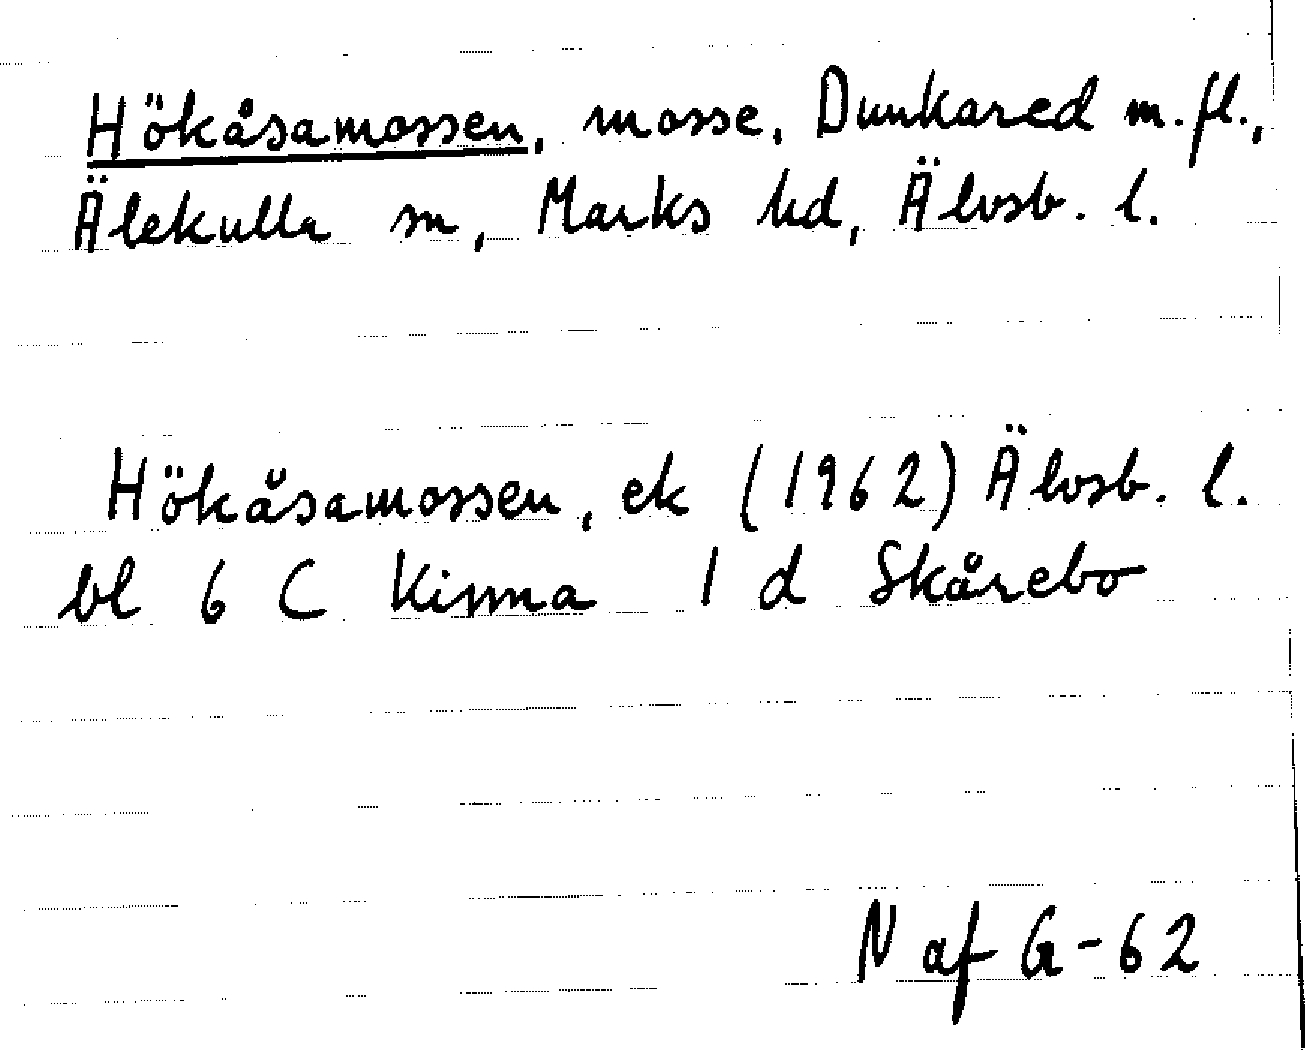 Hökåsamossen, mosse, Dunkared m.fl.,
Älekulla sn, Marks hd, Älvsb. l.
Hökåsamossen, ek (1962) Älvsb. l.
bl 6 C Kinna 1 d Skårebo
N af G-62